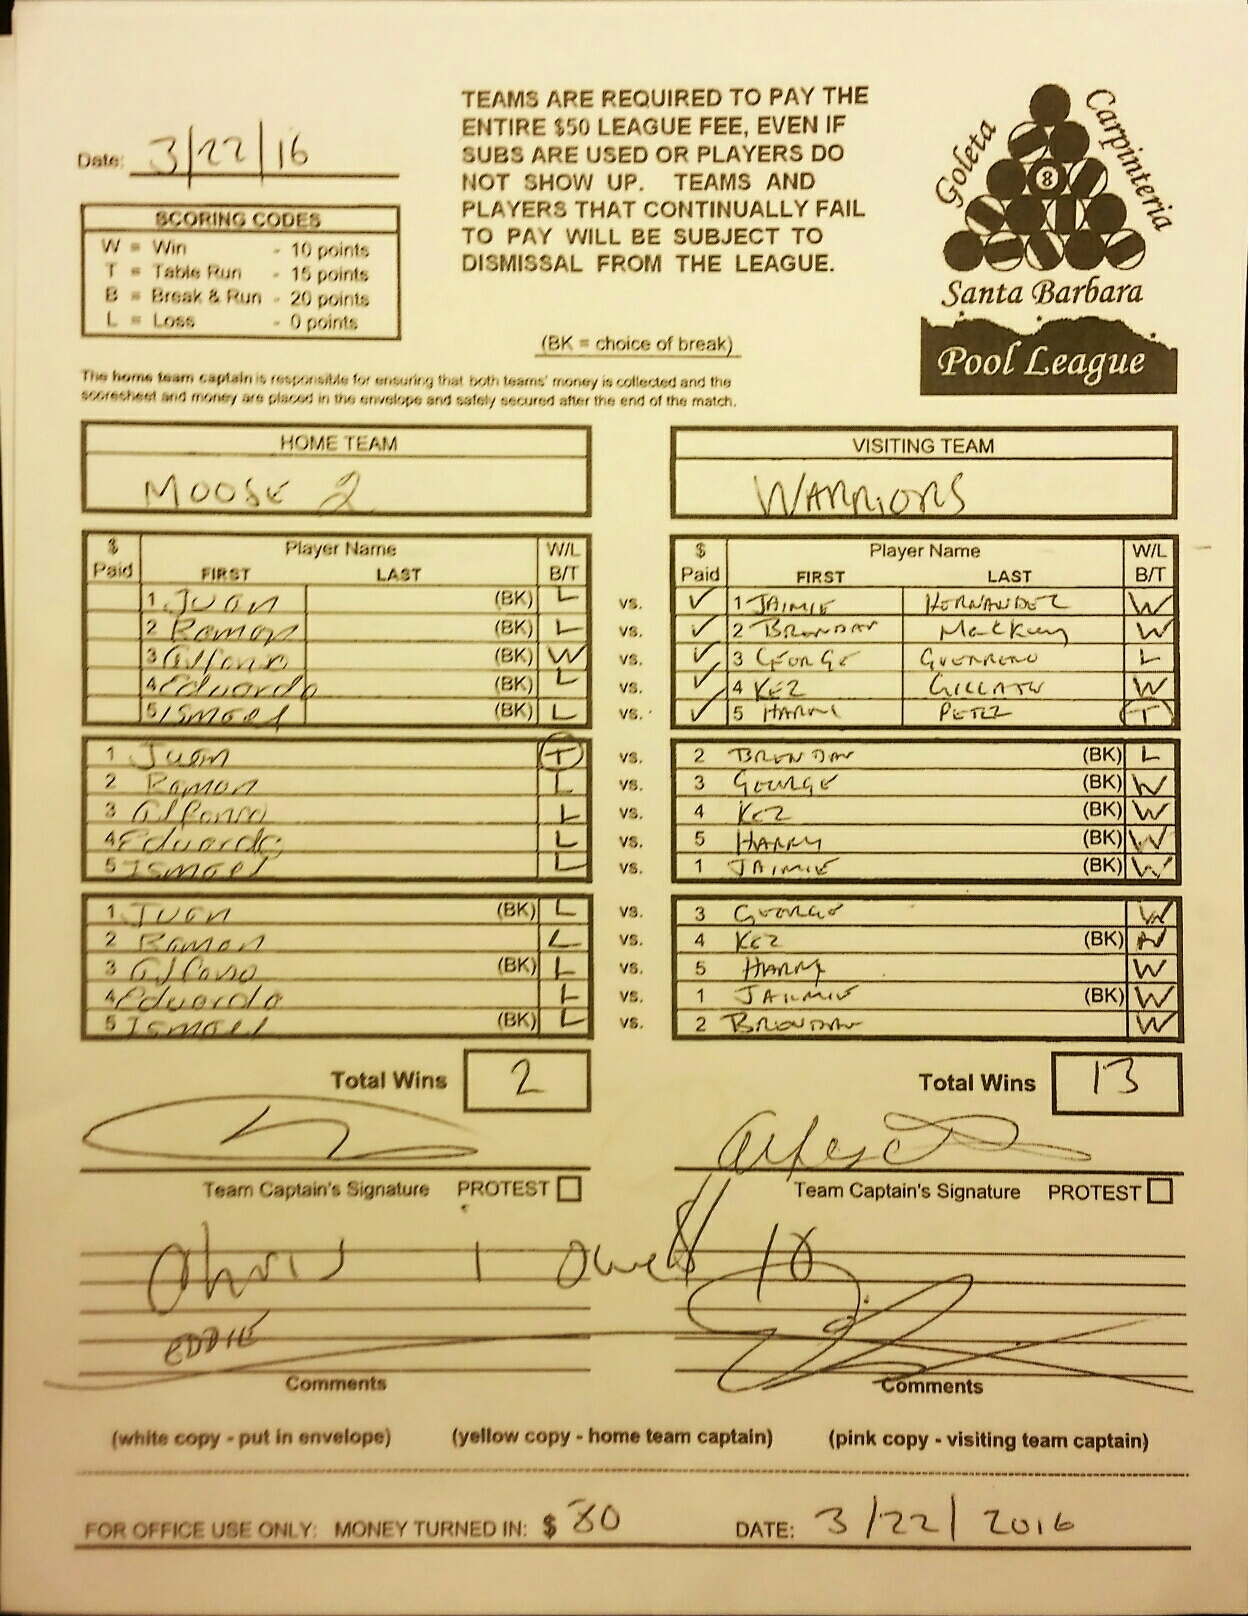 TEAMS ARE REQUIRED TO PAY THE
ENTIRE $50 LEAGUE FEE, EVEN IF
SUBS ARE USED OR PLAYERS DO
NOT SHOW UP. TEAMS AND
PLAYERS THAT CONTINUALLY FAIL
TO PAY WILL BE SUBJECT TO
DISMISSAL FROM THE LEAGUE.
Goleta
Carpinteria
8
Santa Barbara
Pool League
Date: 3/22/16
SCORING CODES
W = Win - 10 points
T = Table Run - 15 points
B = Break & Run - 20 points
L = Loss - 0 points
(BK = choice of break)
The home team captain is responsible for ensuring that both teams' money is collected and the
scoresheet and money are placed in the envelope and safely secured after the end of the match.
HOME TEAM VISITING TEAM
MOOSE 2 WARRIORS
$ Paid Player Name FIRST LAST W/L B/T $ Paid Player Name FIRST LAST W/L B/T
1 Juan (BK) L vs. ✓ 1 JAIMIE HERNANDEZ W
2 Ramon (BK) L vs. ✓ 2 BRENDAN Mackey W
3 Alfonso (BK) W vs. ✓ 3 GEORGE GUERRERO L
4 Eduardo (BK) L vs. ✓ 4 KEZ W
5 Ismael (BK) L vs. ✓ 5 HARRY T
1 Juan T vs. 2 BRENDAN (BK) L
2 Ramon L vs. 3 GEORGE (BK) W
3 Alfonso L vs. 4 KEZ (BK) W
4 Eduardo L vs. 5 HARRY (BK) W
5 Ismael L vs. 1 JAIMIE (BK) W
1 Juan (BK) L vs. 3 GEORGE W
2 Ramon L vs. 4 KEZ (BK) W
3 Alfonso (BK) L vs. 5 HARRY W
4 Eduardo L vs. 1 JAIMIE (BK) W
5 Ismael (BK) L vs. 2 BRENDAN W
Total Wins 2 Total Wins 13
Team Captain's Signature PROTEST Team Captain's Signature PROTEST
Chris I owe $ 10
EDDIE
Comments Comments
(white copy - put in envelope) (yellow copy - home team captain) (pink copy - visiting team captain)
FOR OFFICE USE ONLY: MONEY TURNED IN: $ 80 DATE: 3/22/2016